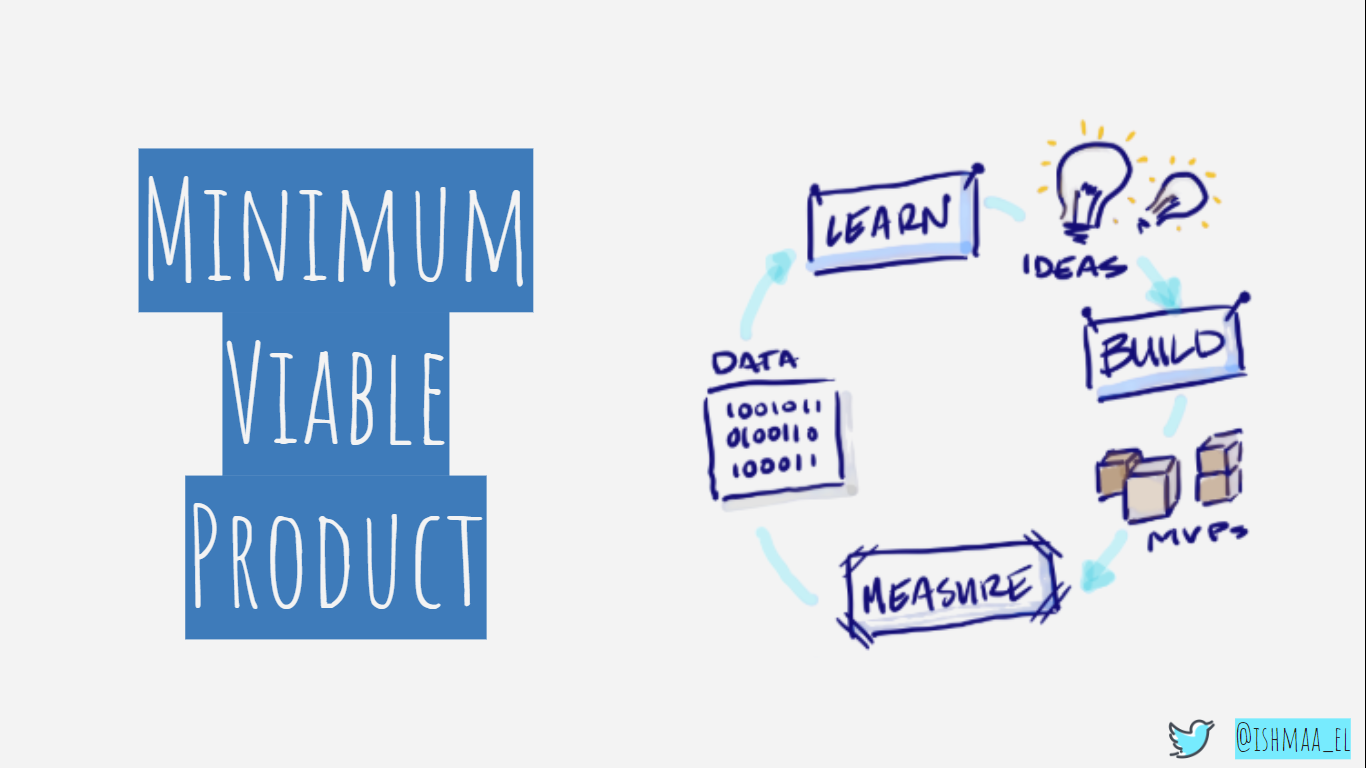 Minimum
Viable
Product
LEARN
IDEAS
BUILD
MVPs
MEASURE
DATA
1001011
0100110
100011
@ishmaa_el